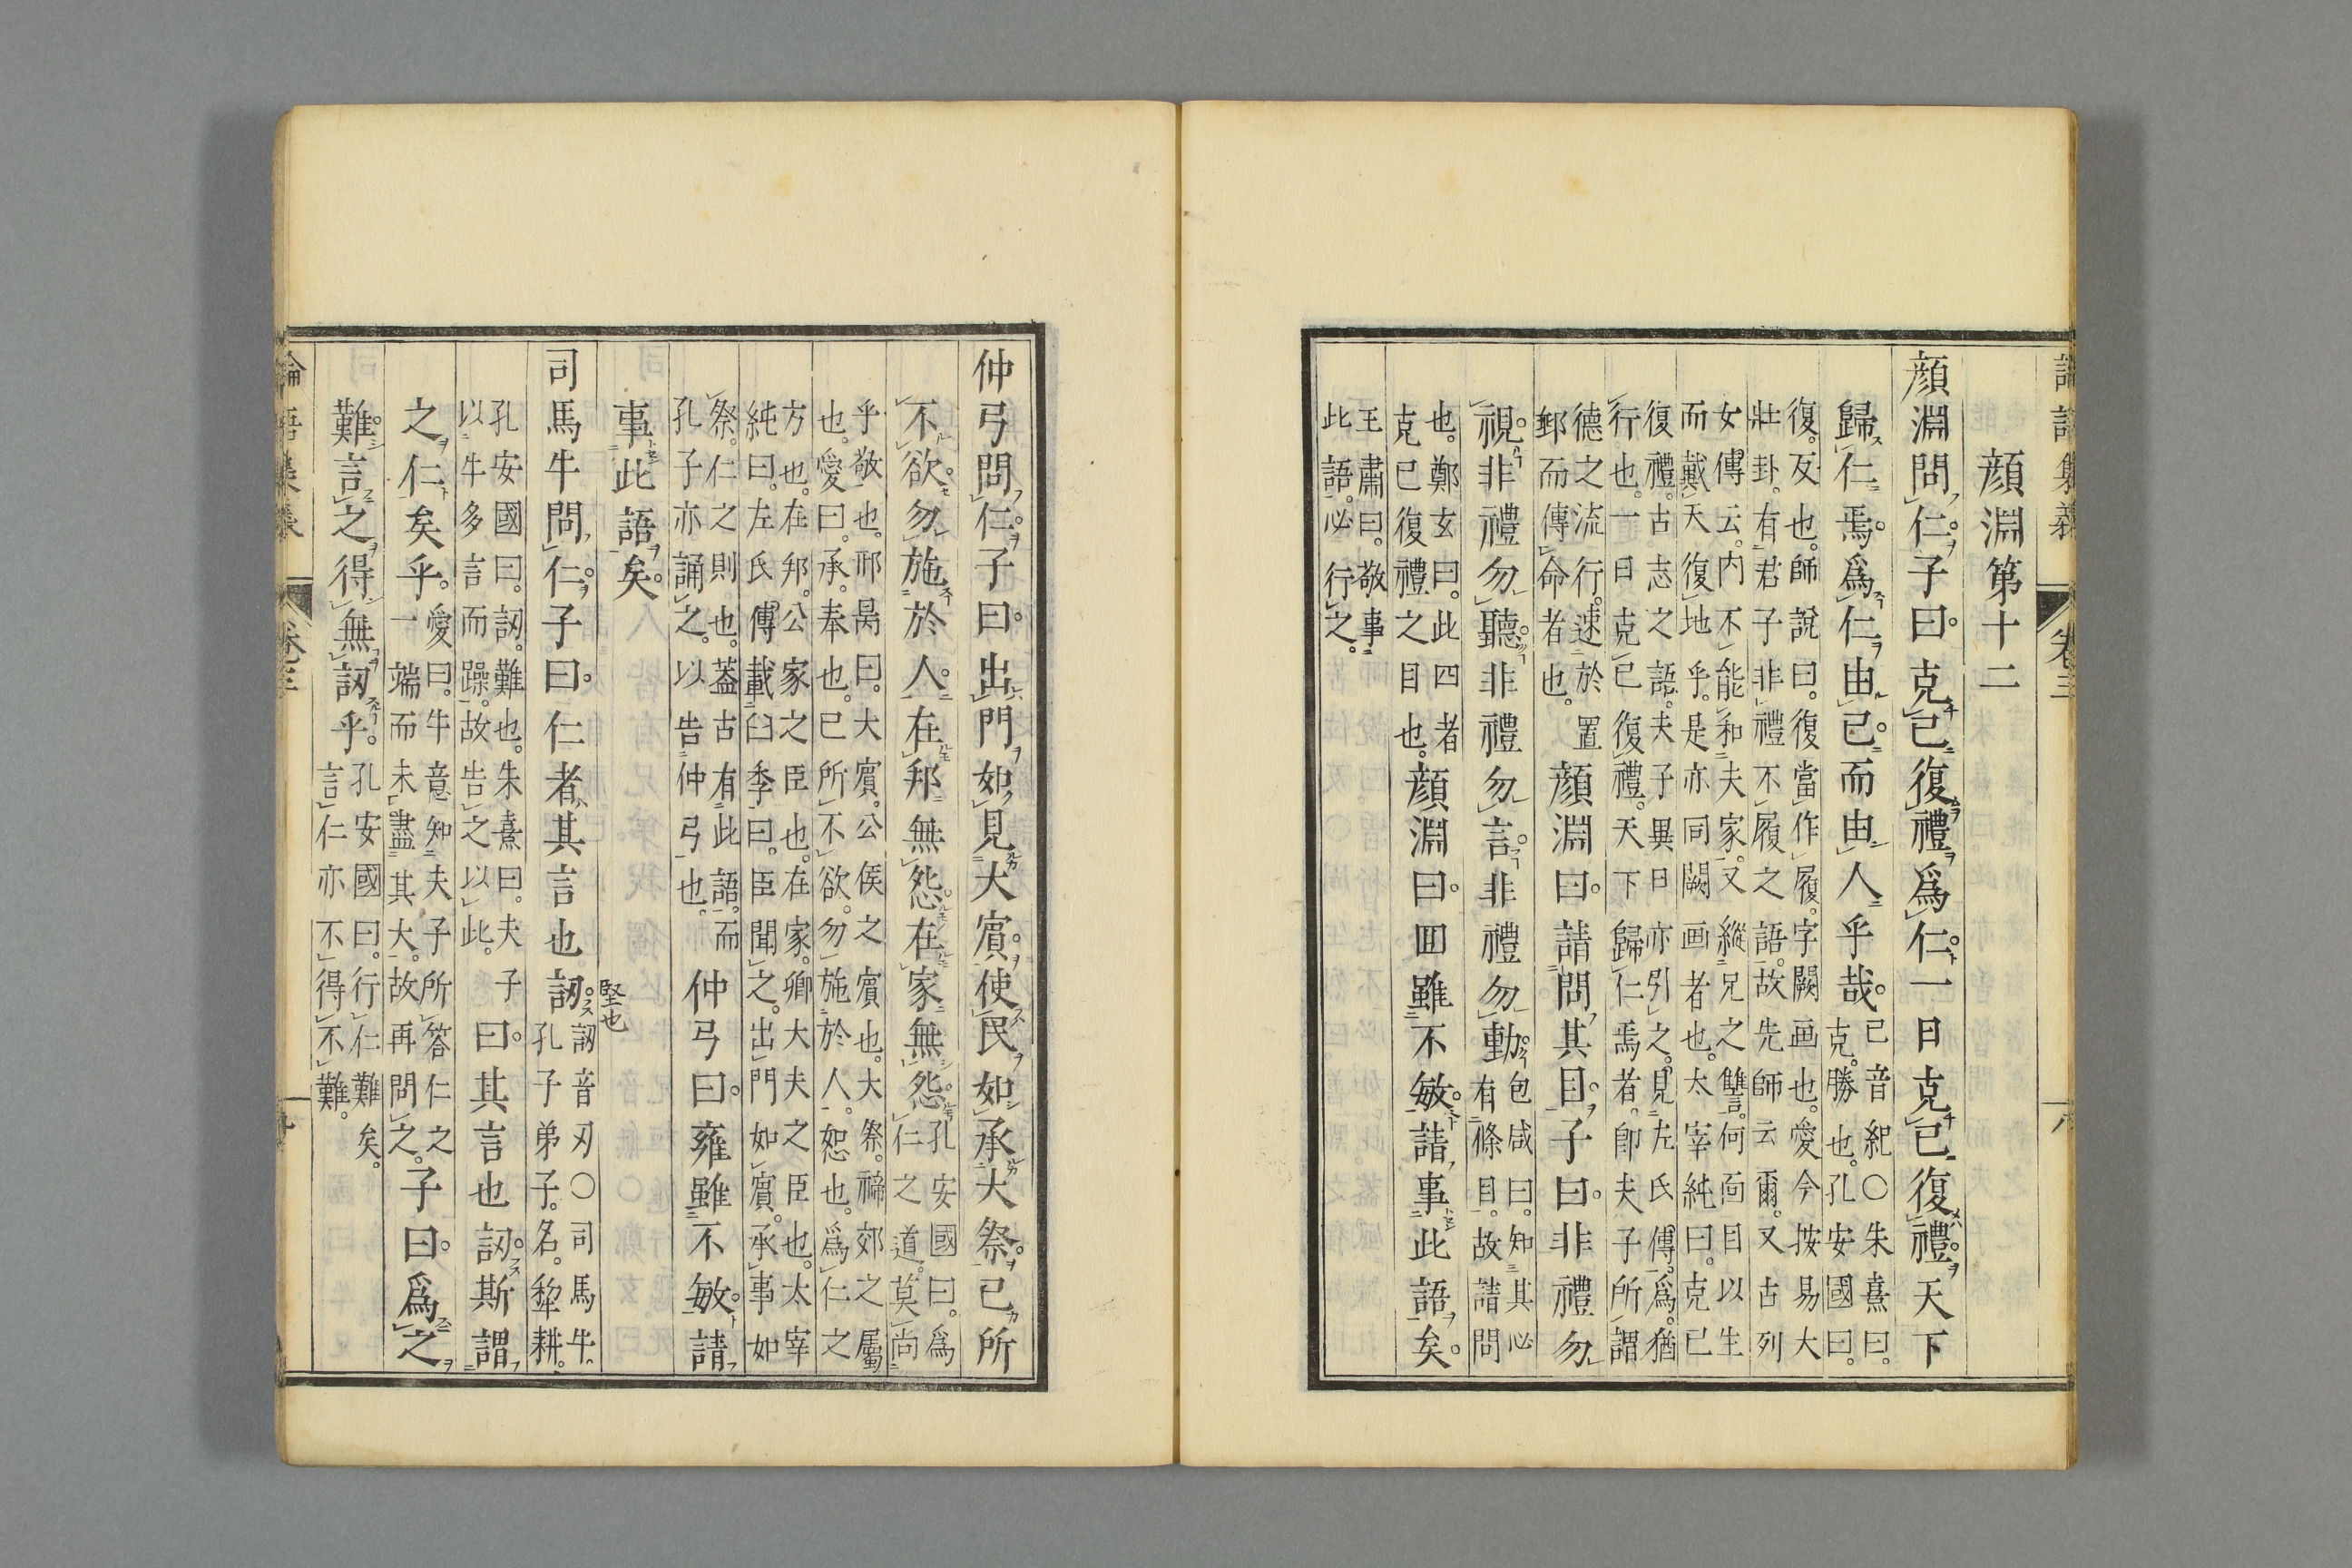 顏淵第十二
顏淵問仁子曰克己復禮爲仁一日克己復禮天下
歸仁焉爲仁由己而由人乎哉
己音紀○朱熹曰
克勝也孔安國曰
復反也師說曰復當作履字闕画也愛今按易大
壯卦有君子非禮不履之語故先師云爾又古列
女傳云内不能和夫家又縱兄之讐何面目以生
而戴天復地乎是亦同闕画者也太宰純曰克己
復禮古志之語夫子異日亦引之見左氏傳爲猶
行也一日克己復禮天下歸仁焉者卽夫子所謂
德之流行速於置
郵而傳命者也
顏淵曰請問其目子曰非禮勿
視非禮勿聽非禮勿言非禮勿動
包咸曰知其必
有條目故請問
也鄭玄曰此四者
克己復禮之目也
顏淵曰回雖不敏請事此語矣
王肅曰敬事
此語必行之
卷三
仲弓問仁子曰出門如見大賓使民如承大祭己所
不欲勿施於人在邦無怨在家無怨
孔安國曰爲
仁之道莫尚
乎敬也邢昺曰大賓公侯之賓也大祭禘郊之屬
也愛曰承奉也己所不欲勿施於人恕也爲仁之
方也在邦公家之臣也在家卿大夫之臣也太宰
純曰左氏傳載臼季曰臣聞之出門如賓承事如
祭仁之則也蓋古有此語而
孔子亦誦之以告仲弓也
仲弓曰雍雖不敏請
事此語矣
司馬牛問仁子曰仁者其言也訒
訒音刃○司馬牛
孔子弟子名犂耕
孔安國曰訒難也朱熹曰夫子
以牛多言而躁故告之以此
曰其言也訒斯謂
之仁矣乎
愛曰牛意知夫子所答仁之
一端而未盡其大故再問之
子曰爲之
難言之得無訒乎
孔安國曰行仁難矣
言仁亦不得不難
論語集義
卷三